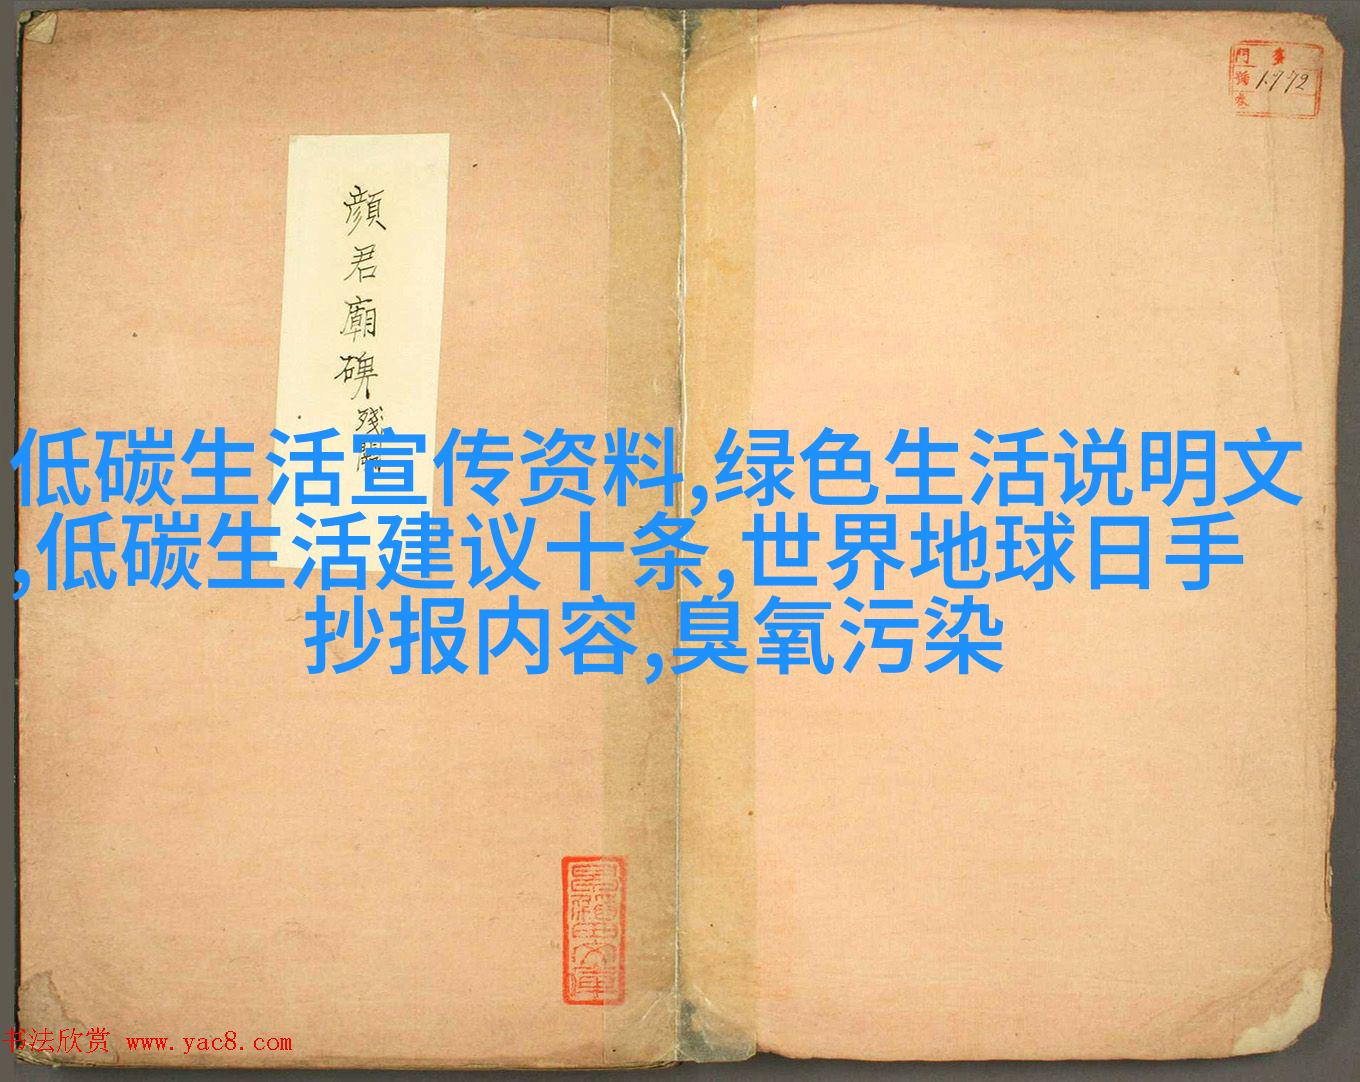 門 彙
號 1772
卷
顔君廟碑殘闕
低碳生活宣传资料,绿色生活说明文
,低碳生活建议十条,世界地球日手
抄报内容,臭氧污染
书法欣赏 www.yac8.com